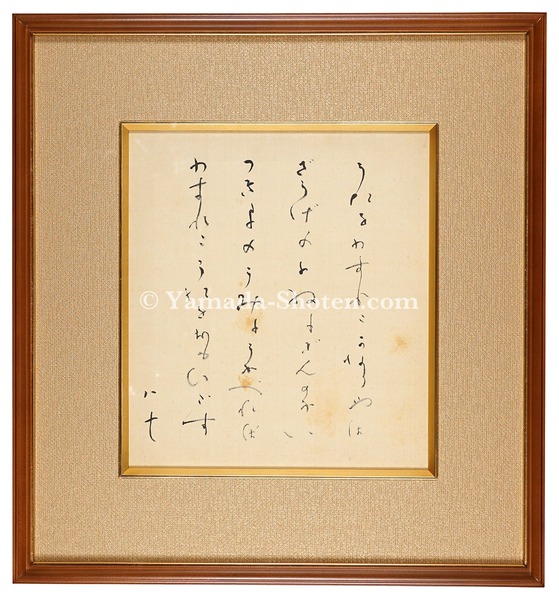 うたをわすれたかなりやは
ざうげのふねにぎんのかい
つきよのうみにうかべれば
わすれたうたをおもひだす
八十
© Yamada-Shoten.com